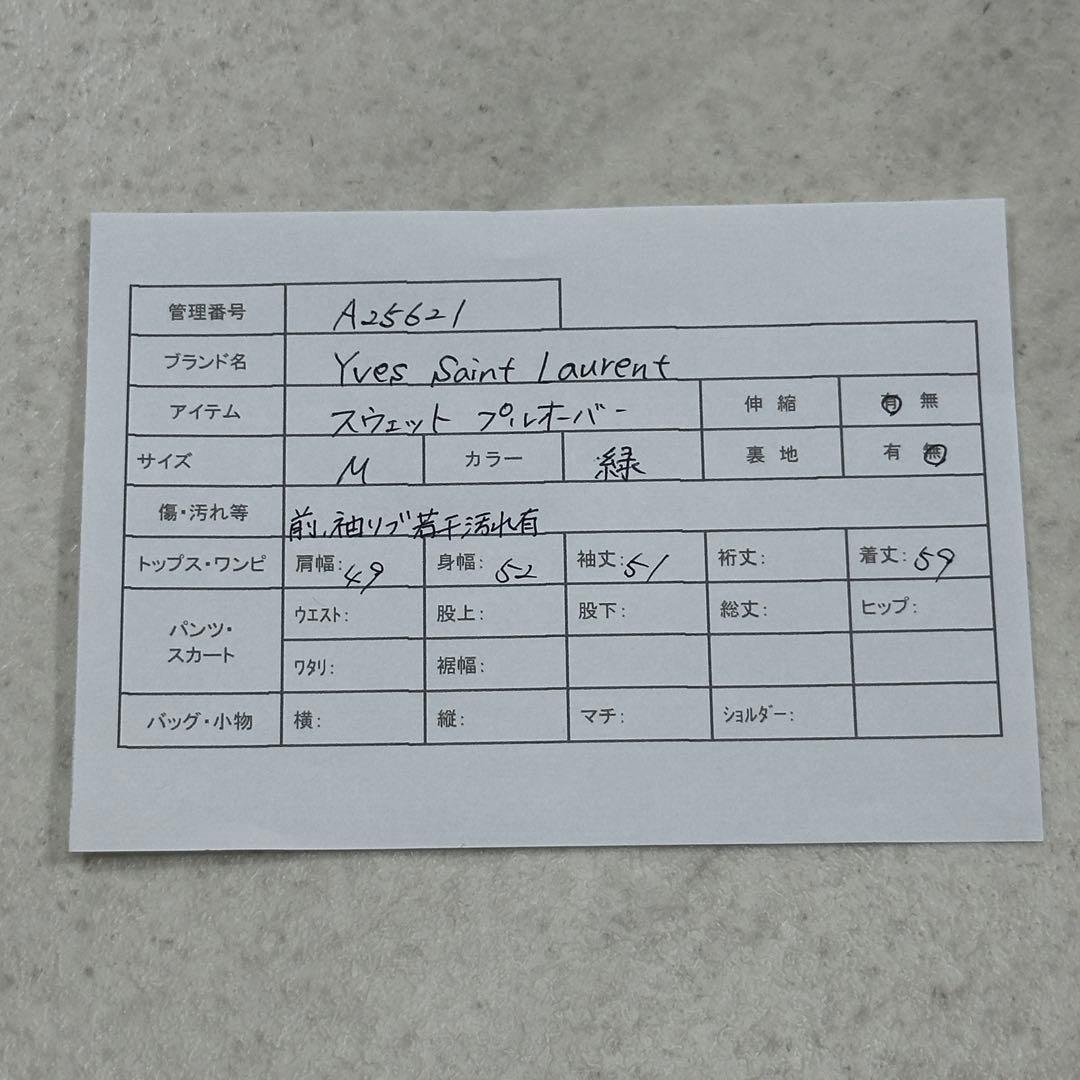 管理番号 A25621
ブランド名 Yves Saint Laurent
アイテム スウェット プルオーバー 伸縮 有 無
サイズ M カラー 緑 裏地 有 無
傷・汚れ等 前、袖リブ若干汚れ有
トップス・ワンピ 肩幅:49 身幅:52 袖丈:51 裄丈: 着丈:59
パンツ・スカート ウエスト: 股上: 股下: 総丈: ヒップ:
ワタリ: 裾幅:
バッグ・小物 横: 縦: マチ: ショルダー: